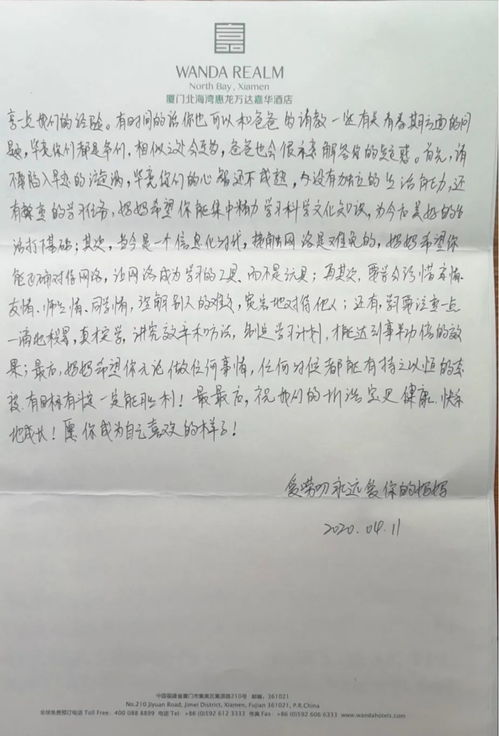 WANDA REALM
North Bay, Xiamen
厦门北海湾惠龙万达嘉华酒店
享一点我们的经验。有时间的话你也可以和爸爸 请教一些有关青春期方面的问
题,毕竟你们都是爷们,相似之处会更多,爸爸也会很乐意解答你的疑惑。首先,请
不要陷入早恋的漩涡,毕竟你们的心智还不成熟,也没有独立的生活能力,还
有繁重的学习任务,妈妈希望你能集中精力学习科学文化知识,为今后美好的生
活打下基础;其次,当今是一个信息化时代,接触网络是难免的,妈妈希望你
能正确对待网络,让网络成为学习的工具、而不是玩具;再其次,要学会珍惜亲情、
友情、师生情、同学情,理解别人的难处,宽容地对待他人;还有,学习要注重一点
一滴地积累,真抓实学,讲究效率和方法,制定学习计划,才能达到事半功倍的效
果;最后,妈妈希望你无论做任何事情,任何时候都能有持之以恒的态
度,有目标有斗志一定能胜利!最最后,祝我们的 宝贝健康、快乐
地成长!愿你成为自己喜欢的样子!
爱劳叨永远爱你的妈妈
2020.04.11
中国福建省厦门市集美区集源路210号 邮编:361021
No.210 Jiyuan Road, Jimei District, Xiamen, Fujian 361021, P.R.China
全球免费预订电话 Toll Free. 400 088 8899 电话 Tel +86 (0)592 612 3333 传真 Fax +86 (0)592 606 6333 www.wandahotels.com